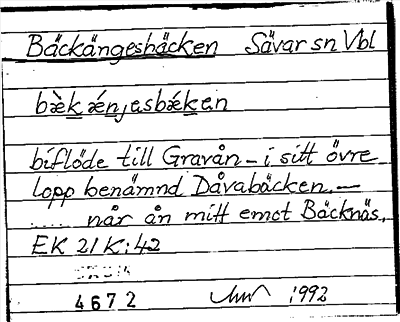 Bäckängesbäcken Sävar sn Vbl
bæ̀k ǽnjasbǽken
biflöde till Gravån – i sitt övre
lopp benämnd Dåvabäcken. –
..... når ån mitt emot Bäcknäs.
EK 21 K:42
4672 1992